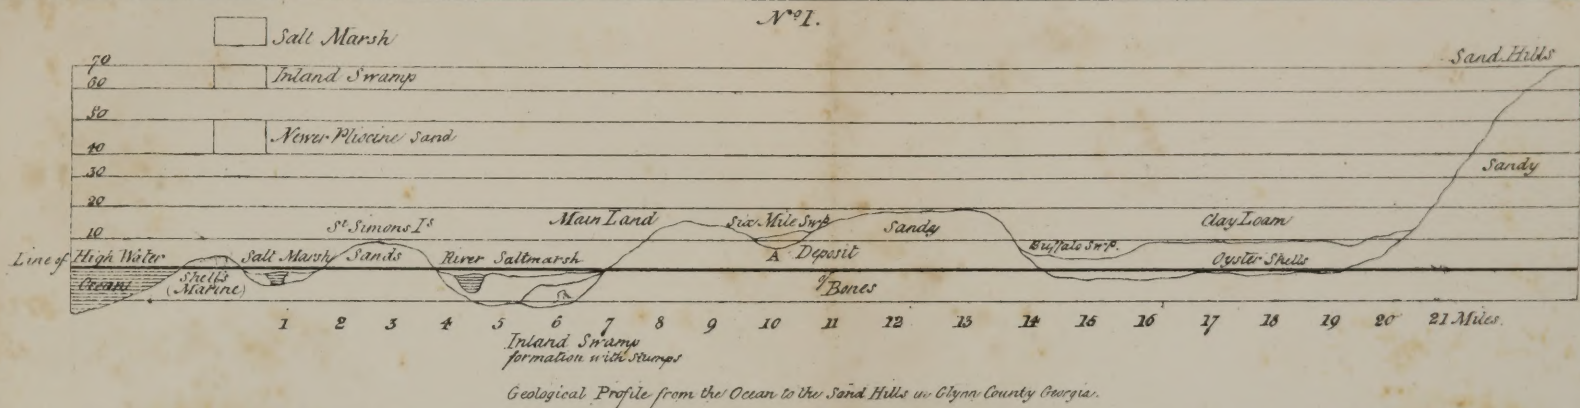 Nº I.
Salt Marsh
Inland Swamp
Newer Pliocine Sand
70
60
50
40
30
20
10
Sand Hills
Sandy
St Simons Is
Main Land
Six Mile Swp
Sandy
Clay Loam
Line of High Water
Salt Marsh
Sands
River Saltmarsh
A Deposit
of
Bones
Buffalo Swp.
Oyster Shells
Ocean
Shells
(Marine)
1 2 3 4 5 6 7 8 9 10 11 12 13 14 15 16 17 18 19 20 21 Miles.
Inland Swamp
formation with stumps
Geological Profile from the Ocean to the Sand Hills in Glynn County Georgia.